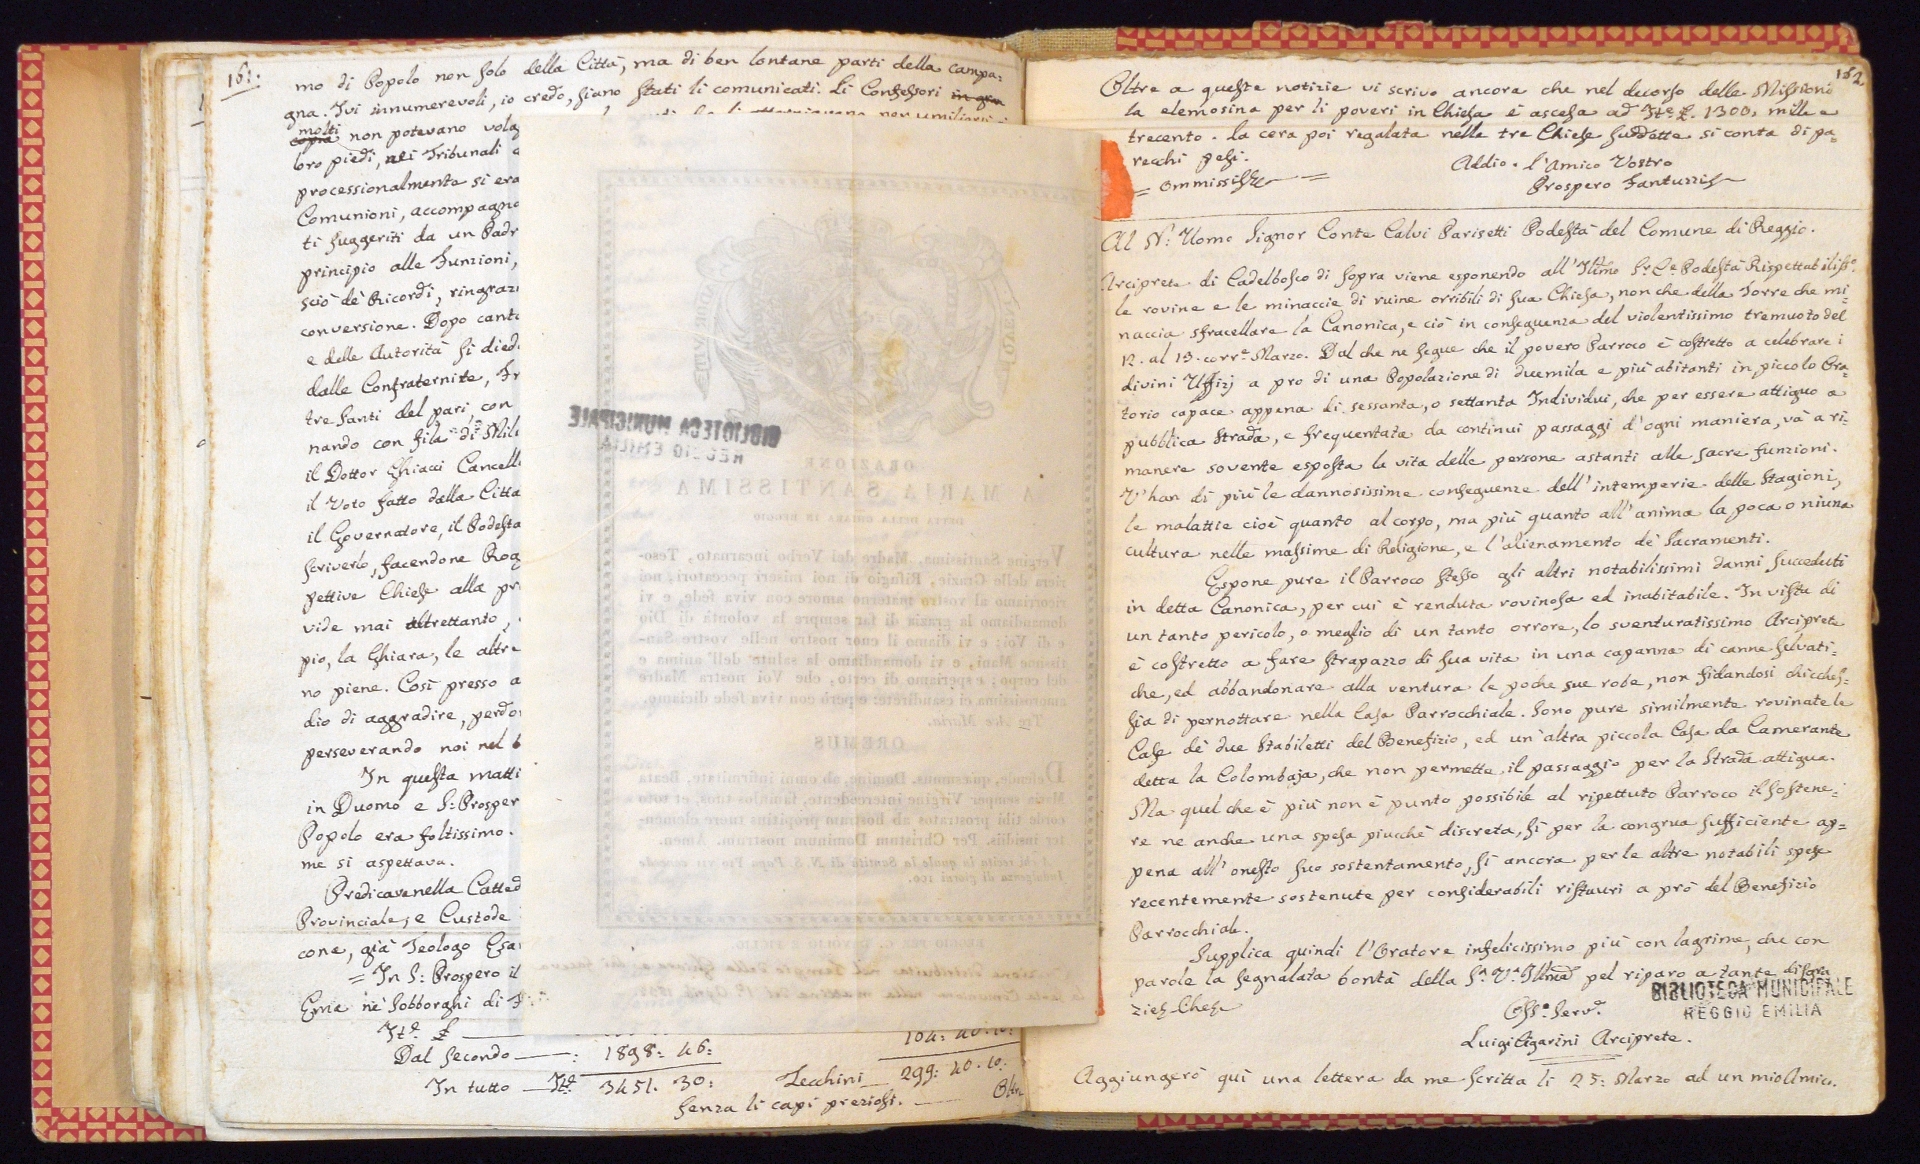 161.
mo di Popolo non solo della Città, ma di ben lontane parti della campa:
gna. Ivi innumerevoli, io credo, siano stati li comunicati. Li Confessori
molti non potevano
loro piedi, nei Tribunali
processionalmente si era
Comunioni, accompagn
ti suggeriti da un Padr
principio alle Funzioni,
sciò de' Ricordi, ringrazi
conversione. Dopo cant
e delle Autorità si died
dalle Confraternite, Fr
tre Santi del pari, con
nando con fila di Mili
il Dottor Ghiacci Cancell
il Voto fatto dalla Citta
il Governatore, il Podesta
scriverlo, facendone Rog
pettive Chiese alla pr
vide mai altrettanto,
pio, la Ghiara, le altre
no piene. Così presso a
dio di aggradire, perdo
perseverando noi nel b
In questa matti
in Duomo e S: Prosper
Popolo era foltissimo.
me si aspettava.
Predicava nella Catted
Provinciale, e Custode
cona, già Teologo Esa
= In S: Prospero il
Eme ne' Sobborghi di
It.e £
Dal secondo — : 1898: 46:
In tutto — It.e 3451. 30: Zecchini 299: 40. 10:
senza li capi preziosi. — Oltre
BIBLIOTECA MUNICIPALE
REGGIO EMILIA
ORAZIONE
A MARIA SANTISSIMA
DETTA DELLA GHIARA IN REGGIO
Vergine Santissima, Madre del Verbo incarnato, Teso-
riera delle Grazie, Rifugio di noi miseri peccatori; noi
ricorriamo al vostro materno amore con viva fede, e vi
domandiamo la grazia di far sempre la volontà di Dio
e di Voi: e vi diamo il cuor nostro nelle vostre San-
tissime Mani, e vi domandiamo la salute dell'anima e
del corpo; e speriamo di certo, che Voi nostra Madre
amorosissima ci esaudirete: e però con viva fede diciamo.
Tre Ave Maria.
OREMUS
Defende, quaesumus, Domine, ab omni infirmitate, Beata
Maria semper Virgine intercedente, famulos tuos, et toto
corde tibi prostratos ab hostium propitius tuere clemen-
ter insidiis. Per Christum Dominum nostrum. Amen.
A chi recita la quale la Santità di N. S. Papa Pio VII concede
Indulgenza di giorni 100.
REGGIO PER G. DAVOLIO E FIGLIO.
162
Oltre a queste notizie vi scrivo ancora che nel decorso delle Missioni
la elemosina per li poveri in Chiesa è ascesa ad It.e £. 1300, mille e
trecento. La cera poi regalata nelle tre Chiese suddette si conta di pa=
recchi pesi. Addio. L'Amico Vostro
= Ommissis = Prospero Fantuzzi
Al N: Uomo Signor Conte Calvi Parisetti Podestà del Comune di Reggio.
Arciprete di Cadelbosco di sopra viene esponendo all'Illmo Sr. Ce. Podestà Rispettabiliss.o
le rovine e le minaccie di ruine orribili di sua Chiesa, non che della Torre che mi=
naccia sfracellare la Canonica, e ciò in conseguenza del violentissimo tremuoto del
12. al 13. corr.e Marzo. Dal che ne segue che il povero Parroco è costretto a celebrare i
divini Uffizj a pro di una Popolazione di duemila e più abitanti in piccolo Ora=
torio capace appena di sessanta, o settanta Individui, che per essere attiguo a
pubblica Strada, e frequentata da continui passaggi d'ogni maniera, và a ri=
manere sovente esposta la vita delle persone astanti alle sacre funzioni.
V'han di più le dannosissime conseguenze dell'intemperie delle Stagioni,
le malattie cioè quanto al corpo, ma più quanto all'anima la poca o niuna
cultura nelle massime di Religione, e l'alienamento de' Sacramenti.
Espone pure il Parroco stesso gli altri notabilissimi danni succeduti
in detta Canonica, per cui è renduta rovinosa ed inabitabile. In vista di
un tanto pericolo, o meglio di un tanto orrore, lo sventuratissimo Arciprete
è costretto a fare strapazzo di sua vita in una capanna di canne selvati=
che, ed abbandonare alla ventura le poche sue robe, non fidandosi chicches=
sia di pernottare nella Casa Parrocchiale. Sono pure similmente rovinate le
Case de' due Stabiletti del Benefizio, ed un'altra piccola Casa da Camerante
detta la Colombaja, che non permette il passaggio per la Strada attigua.
Ma quel che è più non è punto possibile al ripettuto Parroco il sostene=
re ne anche una spesa piucchè discreta, sì per la congrua sufficiente ap=
pena all'onesto suo sostentamento, sì ancora per le altre notabili spese
recentemente sostenute per considerabili ristauri a prò del Benefizio
Parrocchiale.
Supplica quindi l'Oratore infelicissimo più con lagrime, che con
parole la segnalata bontà della S.a V.a Illma pel riparo a tante disgra
zie. Che
Oss.o Serv.e
Luigi Cigarini Arciprete.
BIBLIOTECA MUNICIPALE
REGGIO EMILIA
Aggiungerò quì una lettera da me scritta li 25: Marzo ad un mio Amico.